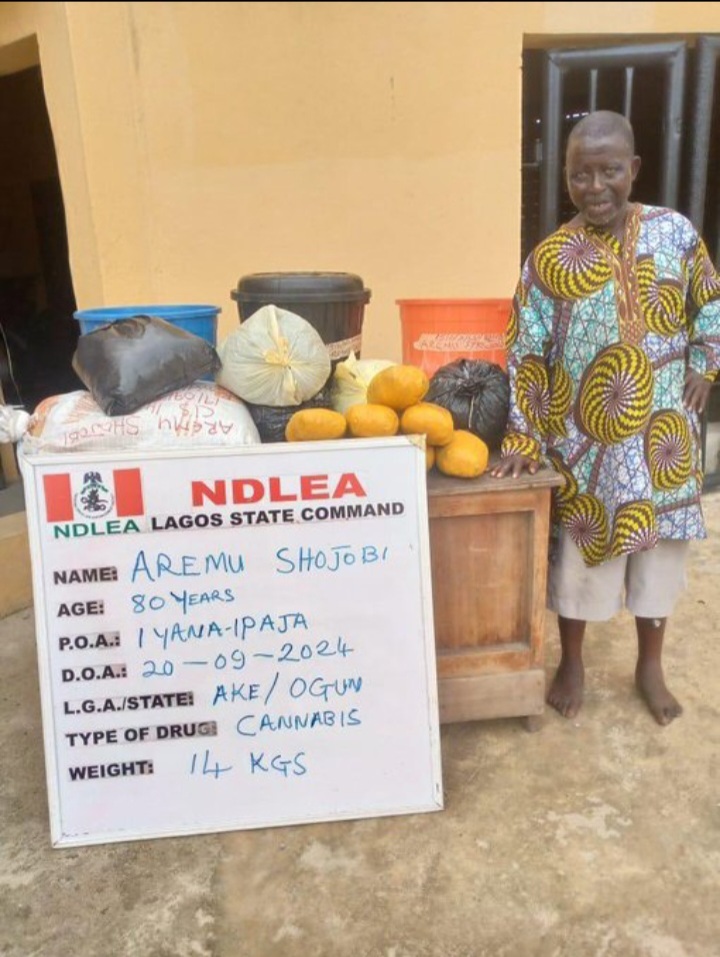 AREMU
SHOJOBI
NDLEA
NDLEA LAGOS STATE COMMAND
NAME: AREMU SHOJOBI
AGE: 80 YEARS
P.O.A.: IYANA-IPAJA
D.O.A.: 20-09-2024
L.G.A./STATE: AKE/OGUN
TYPE OF DRUG: CANNABIS
WEIGHT: 14 KGS